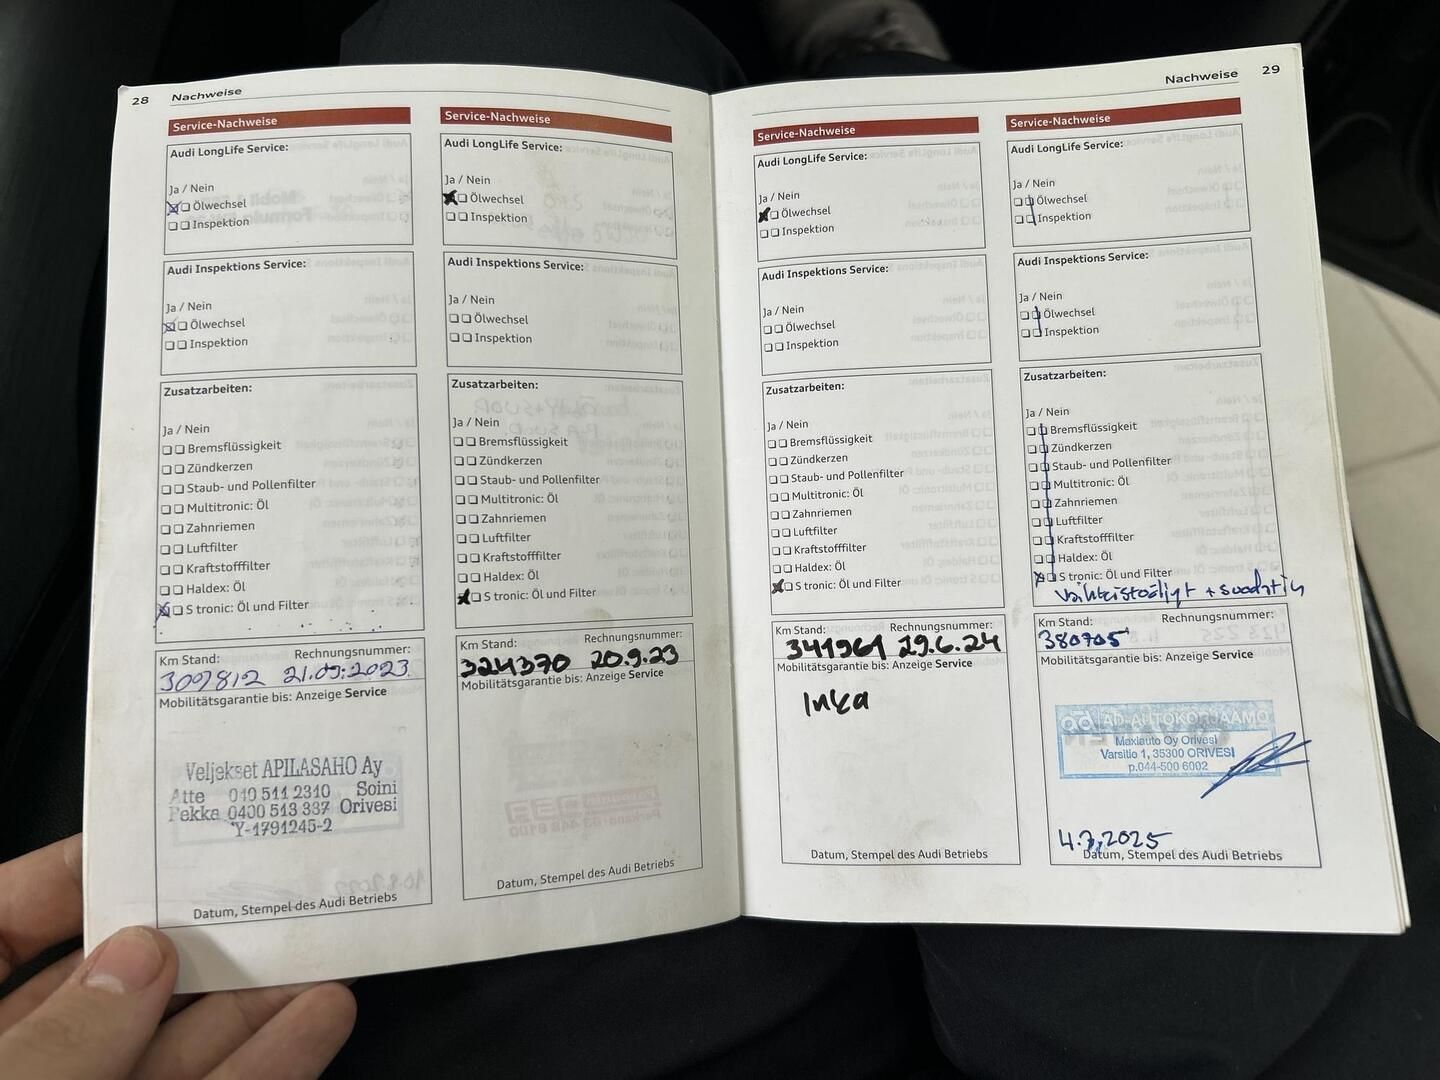 28 Nachweise
Service-Nachweise
Audi LongLife Service:
Ja / Nein
Ölwechsel
Inspektion
Audi Inspektions Service:
Ja / Nein
Ölwechsel
Inspektion
Zusatzarbeiten:
Ja / Nein
Bremsflüssigkeit
Zündkerzen
Staub- und Pollenfilter
Multitronic: Öl
Zahnriemen
Luftfilter
Kraftstofffilter
Haldex: Öl
S tronic: Öl und Filter
Km Stand: Rechnungsnummer:
307812 21.03.2023
Mobilitätsgarantie bis: Anzeige Service
Veljekset APILASAHO Ay
Atte 040 511 2310 Soini
Pekka 0400 513 337 Orivesi
Y-1791245-2
Datum, Stempel des Audi Betriebs
Service-Nachweise
Audi LongLife Service:
Ja / Nein
Ölwechsel
Inspektion
Audi Inspektions Service:
Ja / Nein
Ölwechsel
Inspektion
Zusatzarbeiten:
Ja / Nein
Bremsflüssigkeit
Zündkerzen
Staub- und Pollenfilter
Multitronic: Öl
Zahnriemen
Luftfilter
Kraftstofffilter
Haldex: Öl
S tronic: Öl und Filter
Km Stand: Rechnungsnummer:
324370 20.9.23
Mobilitätsgarantie bis: Anzeige Service
Datum, Stempel des Audi Betriebs
Nachweise 29
Service-Nachweise
Audi LongLife Service:
Ja / Nein
Ölwechsel
Inspektion
Audi Inspektions Service:
Ja / Nein
Ölwechsel
Inspektion
Zusatzarbeiten:
Ja / Nein
Bremsflüssigkeit
Zündkerzen
Staub- und Pollenfilter
Multitronic: Öl
Zahnriemen
Luftfilter
Kraftstofffilter
Haldex: Öl
S tronic: Öl und Filter
Km Stand: Rechnungsnummer:
341961 29.6.24
Mobilitätsgarantie bis: Anzeige Service
Inka
Datum, Stempel des Audi Betriebs
Service-Nachweise
Audi LongLife Service:
Ja / Nein
Ölwechsel
Inspektion
Audi Inspektions Service:
Ja / Nein
Ölwechsel
Inspektion
Zusatzarbeiten:
Ja / Nein
Bremsflüssigkeit
Zündkerzen
Staub- und Pollenfilter
Multitronic: Öl
Zahnriemen
Luftfilter
Kraftstofffilter
Haldex: Öl
S tronic: Öl und Filter
Vaihteistoöljyt + suodatin
Km Stand: Rechnungsnummer:
380705
Mobilitätsgarantie bis: Anzeige Service
AD-AUTOKORJAAMO
Maxiauto Oy Orivesi
Varsitie 1, 35300 ORIVESI
p.044-500 6002
4.7.2025
Datum, Stempel des Audi Betriebs